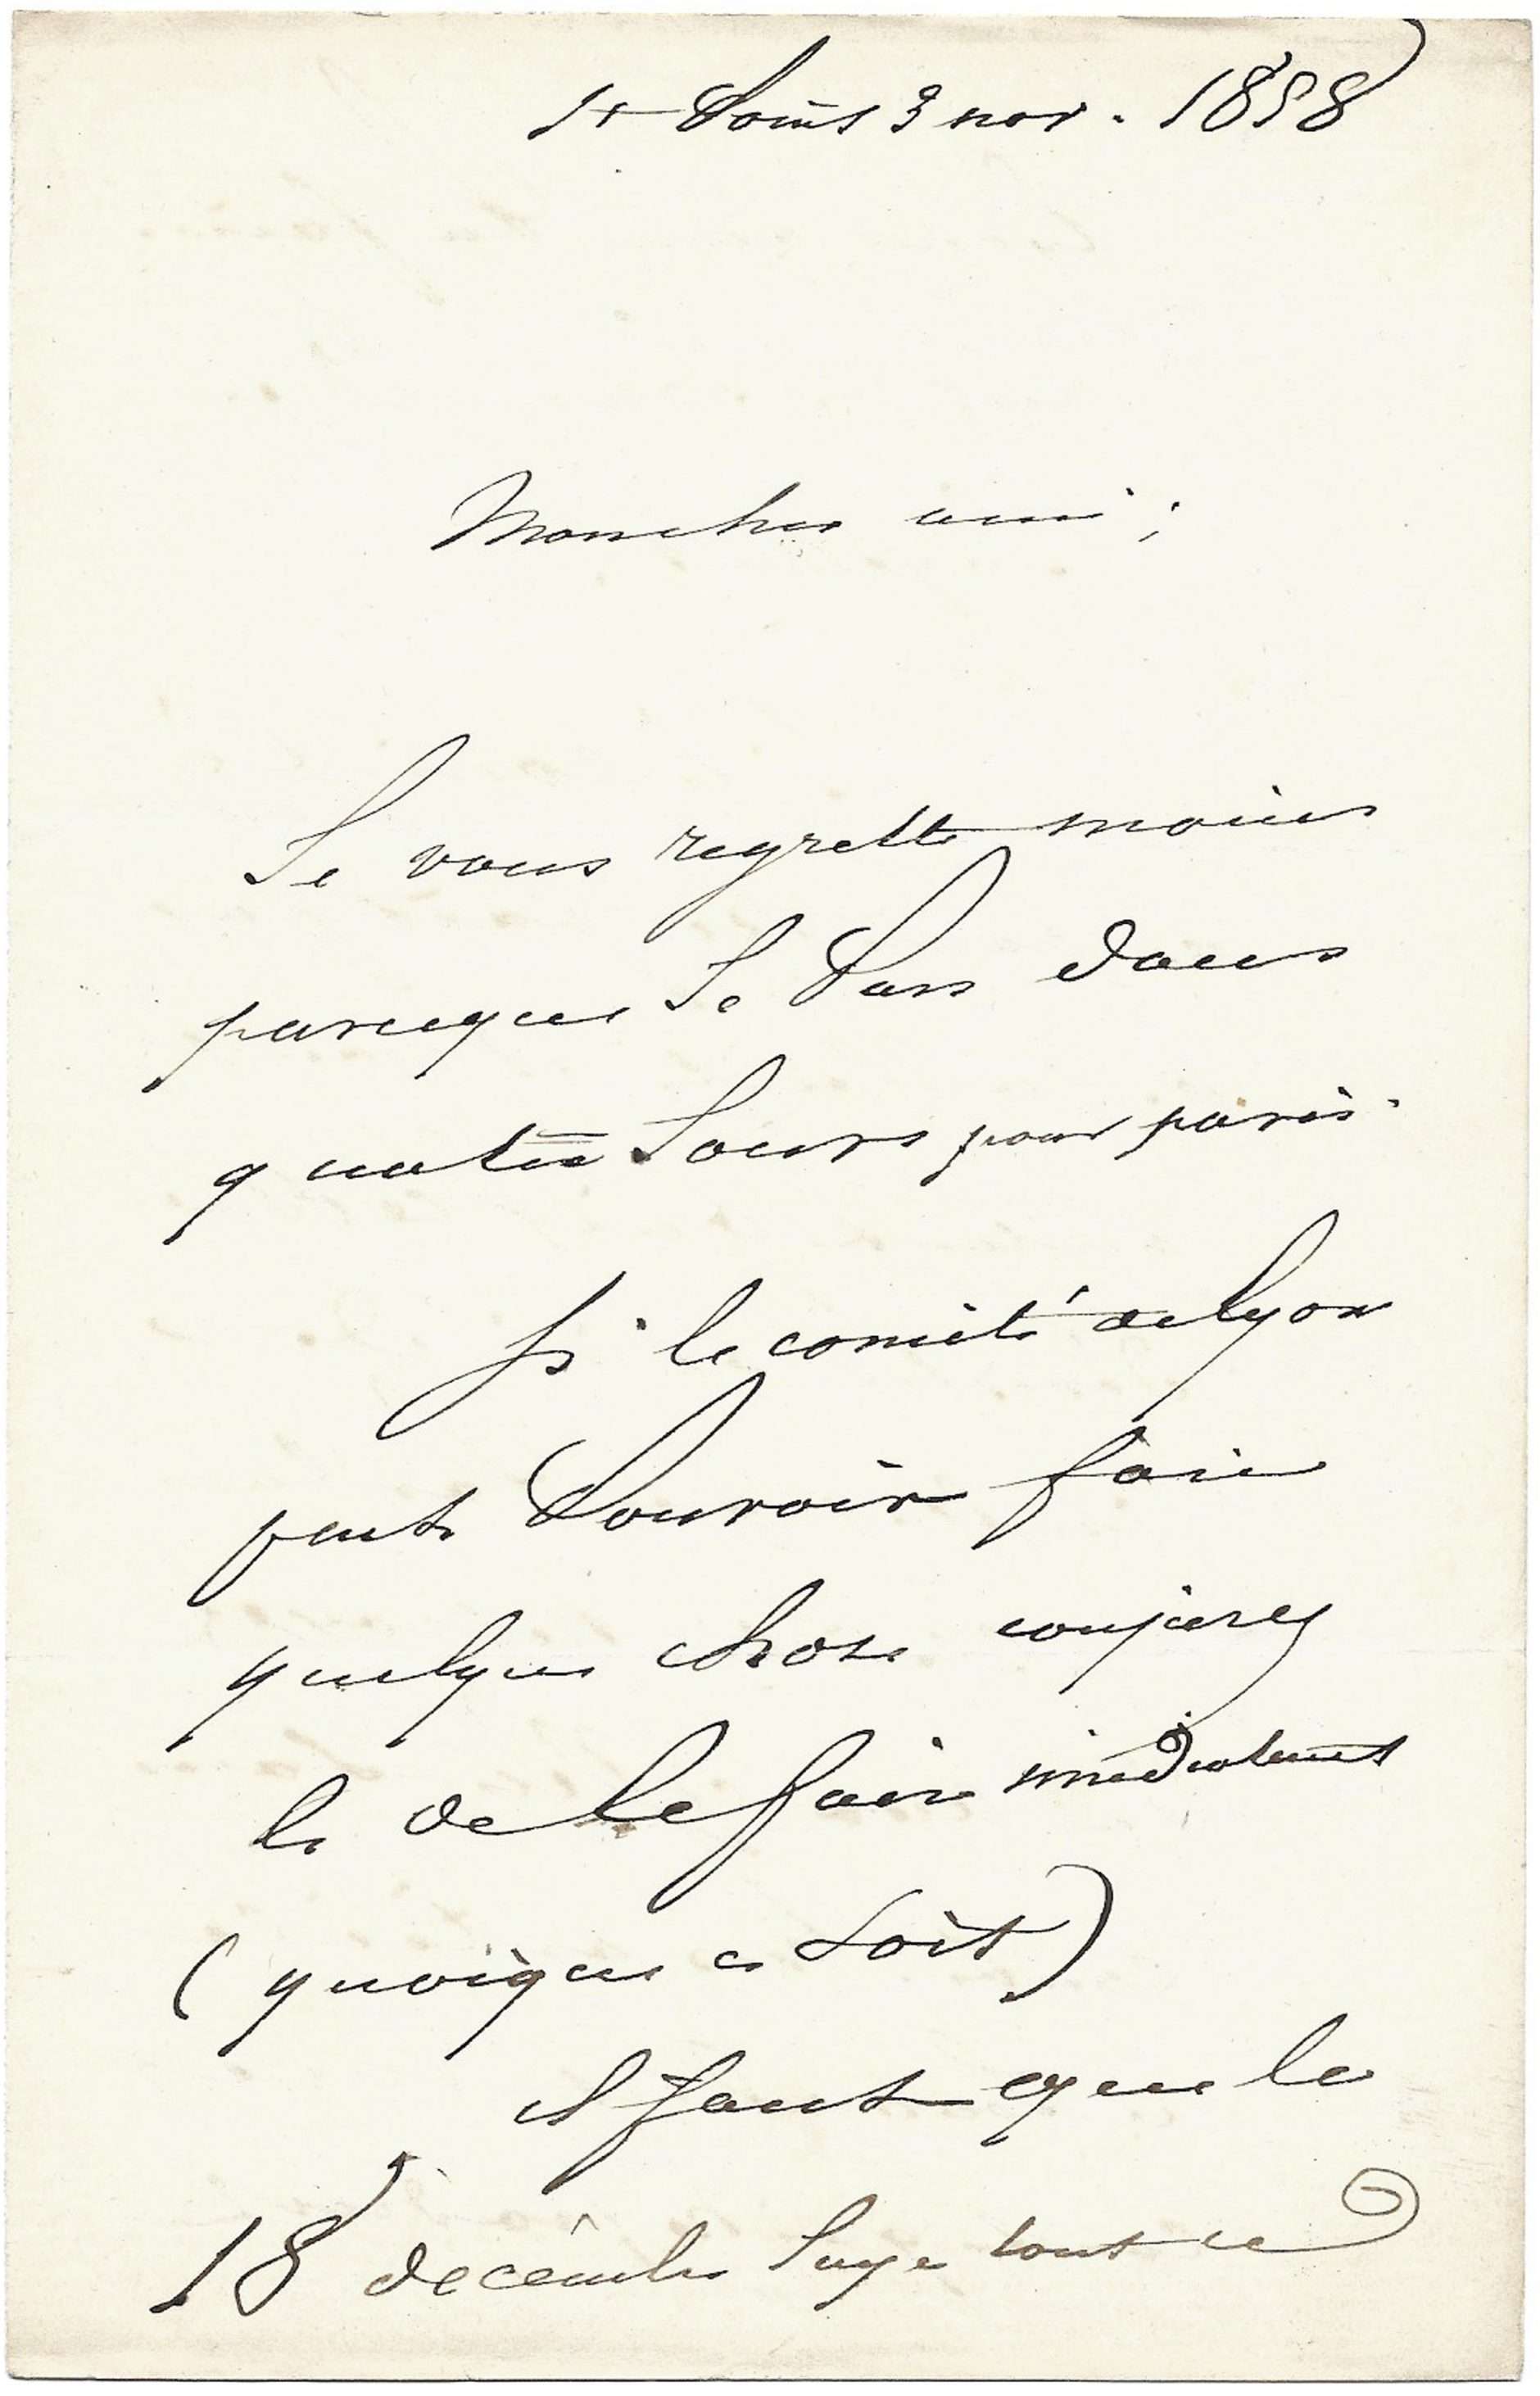 St Point 3 nov. 1858
Mon cher ami ;
Je vous regrette moins
parceque Je Pars dans
quatre Jours pour paris.
Si le comité de lyon
peut Pouvoir faire
quelque chose conjurez
le de le faire immédiatement
(quoique ce soit)
Il faut que le
18 décembre Juge tout ce